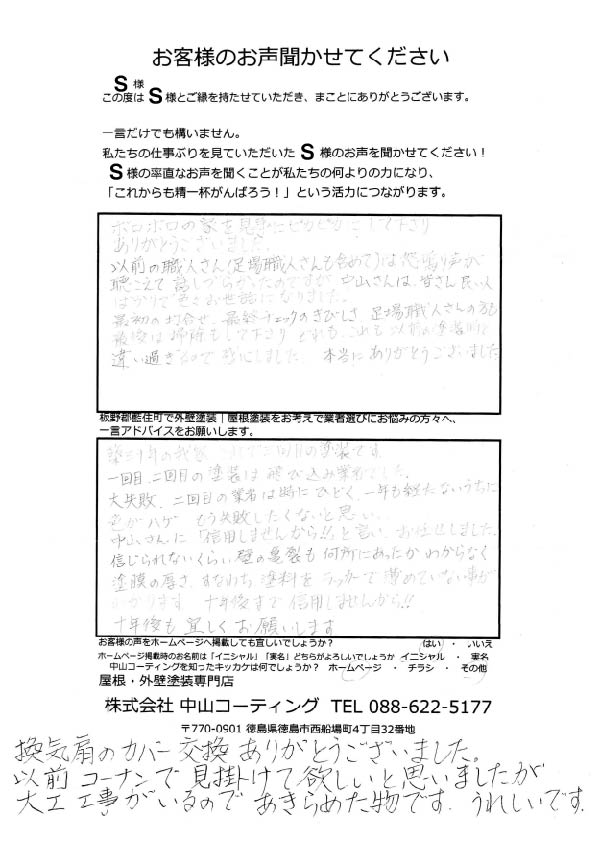 お客様のお声聞かせてください
S様
この度は S 様とご縁を持たせていただき、まことにありがとうございます。
一言だけでも構いません。
私たちの仕事ぶりを見ていただいた S 様のお声を聞かせてください！
S 様の率直なお声を聞くことが私たちの何よりの力になり、
「これからも精一杯がんばろう！」という活力につながります。
ボロボロの家を見事にピカピカにして下さり
ありがとうございました。
以前の職人さん(足場職人さんも含めて)は怒鳴り声が
聴こえて話しづらかったのですが 中山さんは、皆さん良い人
ばかりで色々お世話になりました。
最初の打合せ、最終チェックのきびしさ、足場職人さんの方も
最後は掃除もして下さり どれも、これも 以前の塗装時と
違い過ぎるので感心しました。本当にありがとうございました
板野郡藍住町で外壁塗装｜屋根塗装をお考えで業者選びにお悩みの方々へ、
一言アドバイスをお願いします。
年の我家 三回目の塗装です。
一回目、二回目の塗装は飛び込み業者でした。
大失敗、二回目の業者は特にひどく、一年も経たないうちに
色がハゲ もう失敗したくないと思い、
中山さんに「信用しませんから!!」と言い、お任せしました。
信じられないくらい壁の亀裂も何所にあったかわからなく
塗膜の厚さ、すなわち、塗料をラッカーで薄めていない事が
わかります。十年後まで信用しませんから!!
十年後も宜しくお願いします
お客様の声をホームページへ掲載しても宜しいでしょうか？ はい ・ いいえ
ホームページ掲載時のお名前は「イニシャル」「実名」どちらがよろしいでしょうか イニシャル ・ 実名
中山コーティングを知ったキッカケは何でしょうか？ ホームページ ・ チラシ ・ その他
屋根・外壁塗装専門店
株式会社 中山コーティング TEL 088-622-5177
〒770-0901 徳島県徳島市西船場町4丁目32番地
換気扇のカバー交換ありがとうございました。
以前コーナンで見掛けて欲しいと思いましたが
大工工事がいるのであきらめた物です。うれしいです。